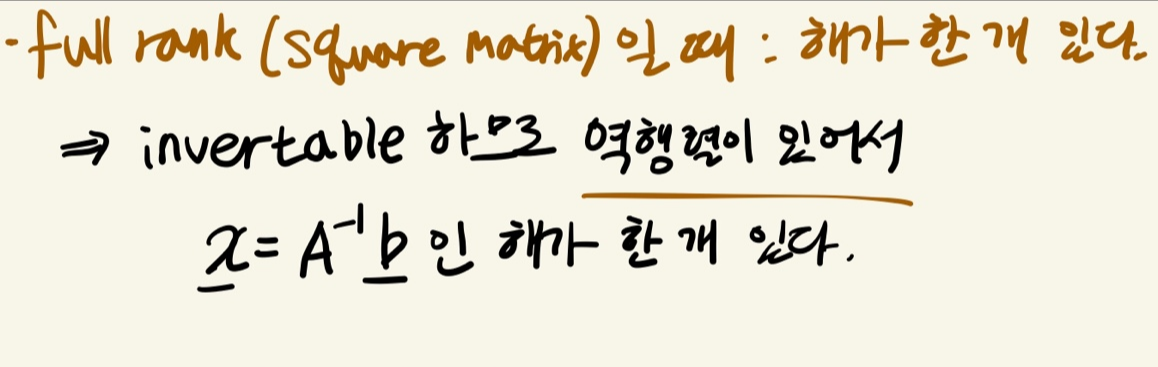 - full rank (square matrix) 일 때 : 해가 한 개 있다.
⇒ invertable 하므로 역행렬이 있어서
x = A⁻¹ b 인 해가 한 개 있다.